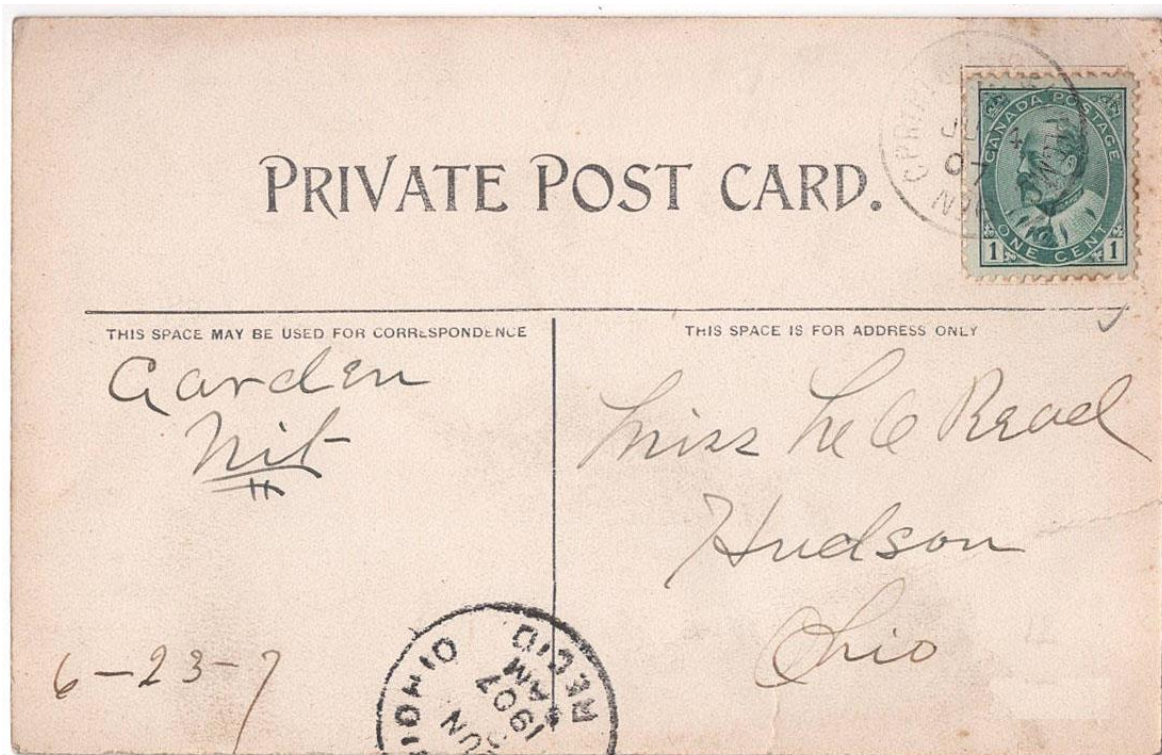 PRIVATE POST CARD.
CANADA POSTAGE
1 ONE CENT 1
07
THIS SPACE MAY BE USED FOR CORRESPONDENCE
Garden
Nit
6-23-7
THIS SPACE IS FOR ADDRESS ONLY
Miss
Read
Hudson
Ohio
OHIO
REC'D
AM
1907